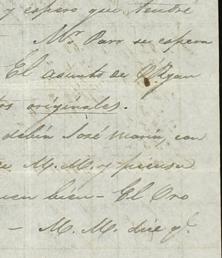 y espero que tendre
Mr. Parr se espera
El asunto de
tos originales.
debin José Maria, con
M. M. y precisa
bien - El Oro
- M. M. dice q.